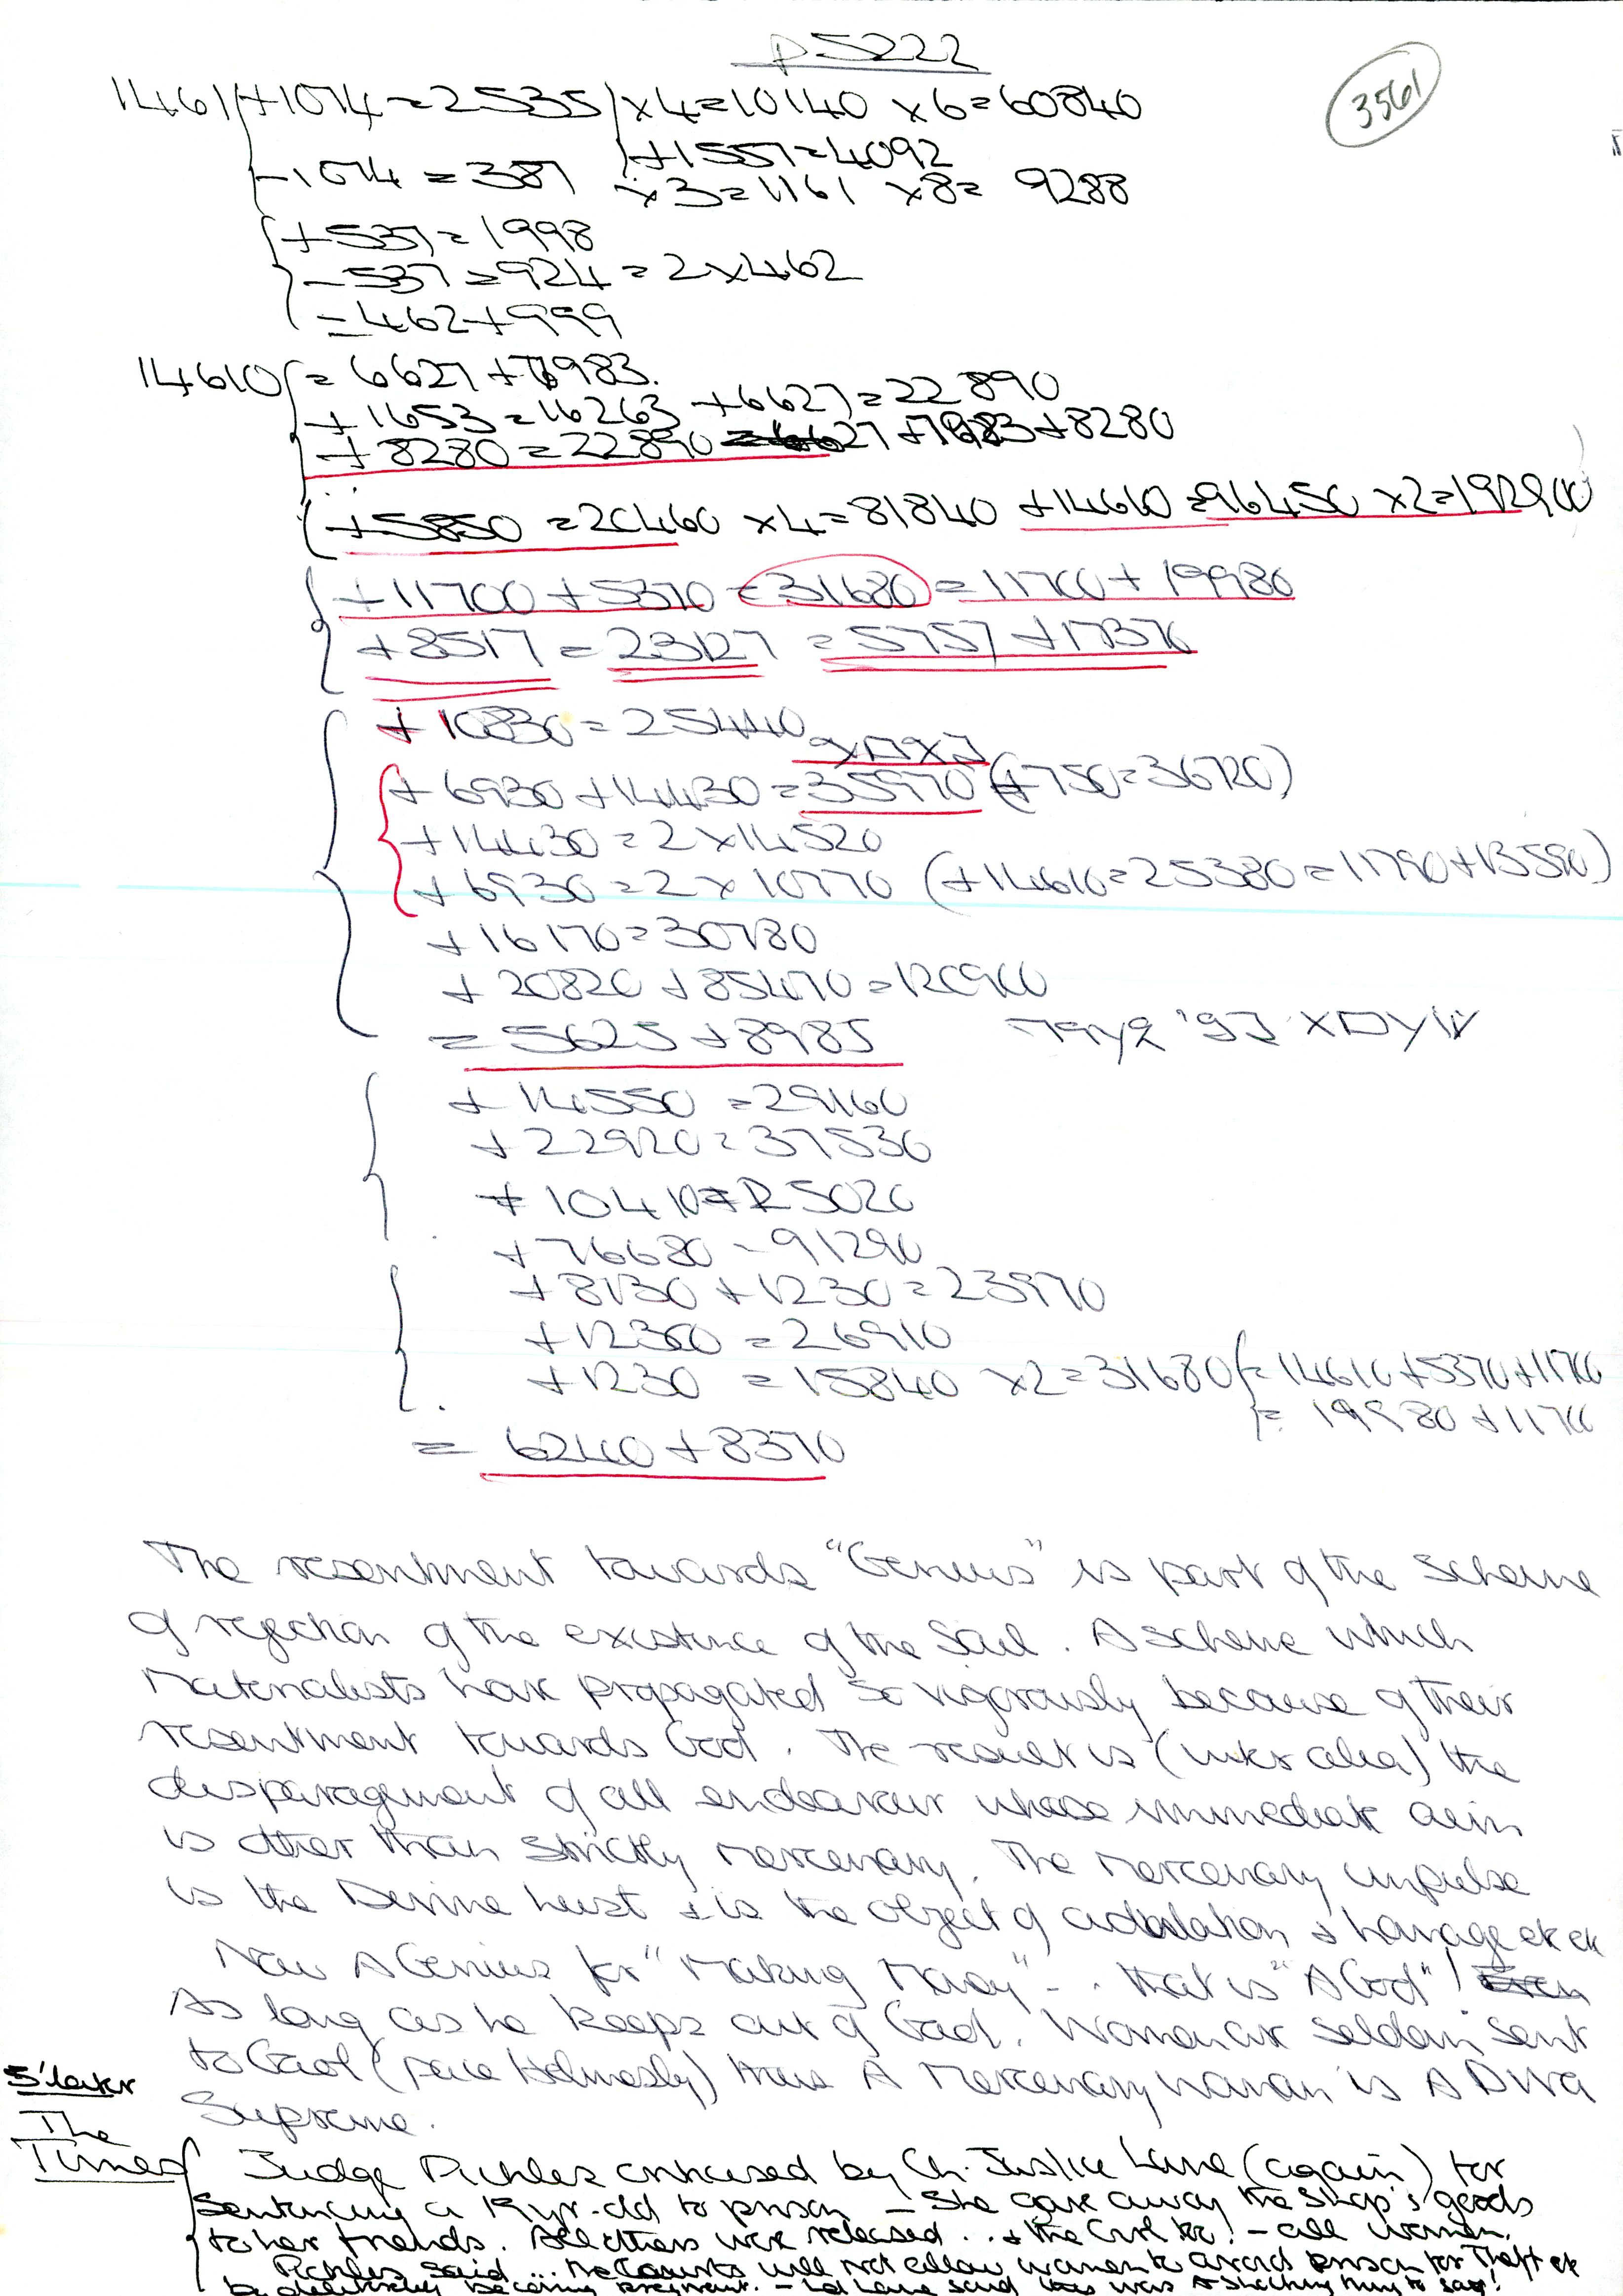 p5222
3561
1461 +1074=2535 ×4=10140 ×6=60840
+1557=4092
-1074=387 ×3=1161 ×8= 9288
+537=1998
-537=924=2×462
=462+999
14610 = 6627+7983.
+1653=16263 +6627=22890
+8280=22890 = 6627+7983+8280
+5850 =20460 ×4=81840 +14610=96450 ×2=192900
+11700+5370=31680=11700+19980
+8517=23127 =5757+17370
+10830=25440
+6930+14430=35970 (+750=36720)
+14430=2×14520
+6930=2×10770 (+14610=25380=11790+13590)
+16170=30780
+20820+85470=120900
=5625+8985
+14550=29160
+22920=37530
+10410=25020
+76680=91290
+8130+1230=23970
+12300=26910
+1230 =15840 ×2=31680 =14610+5370+11700
= 19980+11700
= 6240+8370
The resentment towards "Genius" is part of the scheme
of rejection of the existence of the Soul. A scheme which
Materialists have propagated so vigorously because of their
resentment towards God. The result is (inter alia) the
disparagement of all endeavour whose immediate aim
is other than strictly mercenary. The Mercenary impulse
is the Divine and is the object of adulation + homage etc etc
Now A Genius for "Making Money" - . that is "A God"! Even
As long as he keeps out of Gaol. Women are seldom sent
to Gaol (pace Helmesly) thus A Mercenary woman is A Diva
Supreme.
5'later
The
Times
Judge Pickles criticised by Ch. Justice Lane (again) for
sentencing a 19yr.old to prison - She gave away the Shop's goods
to her friends. All others were released .. + the Civil too! - all women.
Pickles said ... the Courts will not allow women to avoid prison for Theft etc
by deliberately becoming pregnant. - Ld Lane said this was A shocking thing to say!